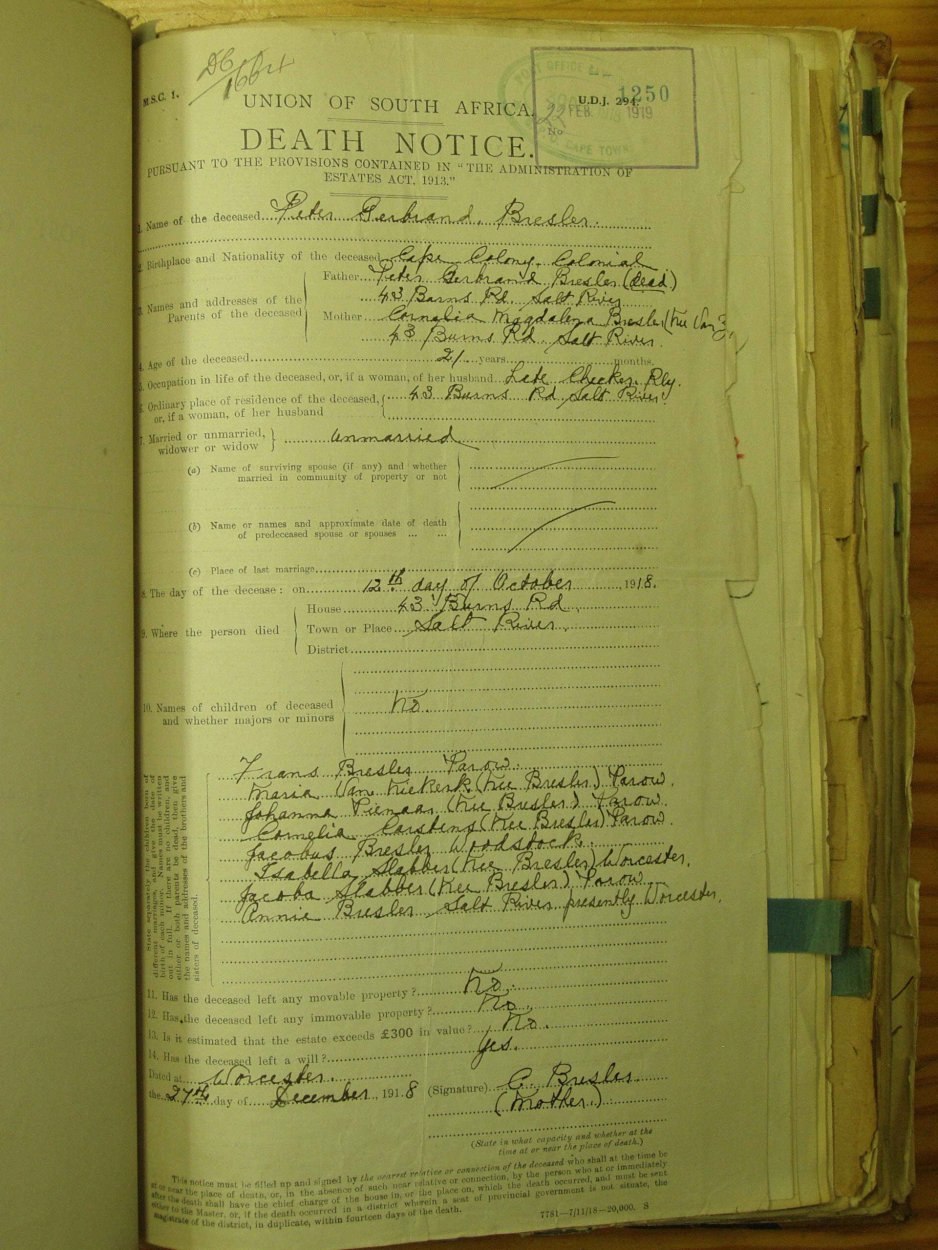 M.S.C. 1.
U.D.J. 294.
1250
POST OFFICE
22 FEB 1919
No
CAPE TOWN
UNION OF SOUTH AFRICA.
DEATH NOTICE.
PURSUANT TO THE PROVISIONS CONTAINED IN "THE ADMINISTRATION OF
ESTATES ACT, 1913."
1. Name of the deceased Peter Gerbrand. Bresler.
2. Birthplace and Nationality of the deceased Cape Colony. Colonial
3. Names and addresses of the Parents of the deceased
Father Peter Gerbrand Bresler (dead)
43 Burns Rd. Salt River
Mother Cornelia Magdalena Bresler (nee Van
43 Burns Rd. Salt River.
4. Age of the deceased 21 years months.
5. Occupation in life of the deceased, or, if a woman, of her husband Late Checker Rly.
6. Ordinary place of residence of the deceased, 43 Burns Rd. Salt River.
or, if a woman, of her husband
7. Married or unmarried, Unmarried
widower or widow
(a) Name of surviving spouse (if any) and whether
married in community of property or not
(b) Name or names and approximate date of death
of predeceased spouse or spouses ... ...
(c) Place of last marriage
8. The day of the decease: on 12th day of October 1918.
House 43 Burns Rd.
9. Where the person died Town or Place Salt River.
District
10. Names of children of deceased No.
and whether majors or minors
State separately the children born of
different marriages, and give the date of
birth of each minor. Names must be written
out in full. If there are no children, and
either or both parents be dead, then give
the names and addresses of the brothers and
sisters of deceased.
Frans Bresler Parow.
Maria Van Niekerk (nee Bresler) Parow.
Johanna Pienaar (nee Bresler) Parow.
Cornelia Carstens (nee Bresler) Parow.
Jacobus Bresler Woodstock.
Isabella Slabber (nee Bresler) Worcester.
Jacoba Slabber (nee Bresler) Parow.
Annie Bresler Salt River presently Worcester.
11. Has the deceased left any movable property? No.
12. Has the deceased left any immovable property? No.
13. Is it estimated that the estate exceeds £300 in value? No.
14. Has the deceased left a will? Yes.
Dated at Worcester.
the 27th day of December, 1918 (Signature) C. Bresler
(Mother)
(State in what capacity and whether at the
time at or near the place of death.)
This notice must be filled up and signed by the nearest relative or connection of the deceased who shall at the time be
at or near the place of death, or, in the absence of such near relative or connection, by the person who at or immediately
after the death shall have the chief charge of the house in, or the place on, which the death occurred, and must be sent
either to the Master, or, if the death occurred in a district wherein a seat of provincial government is not situate, the
magistrate of the district, in duplicate, within fourteen days of the death.
7781—7/11/18—20,000. S